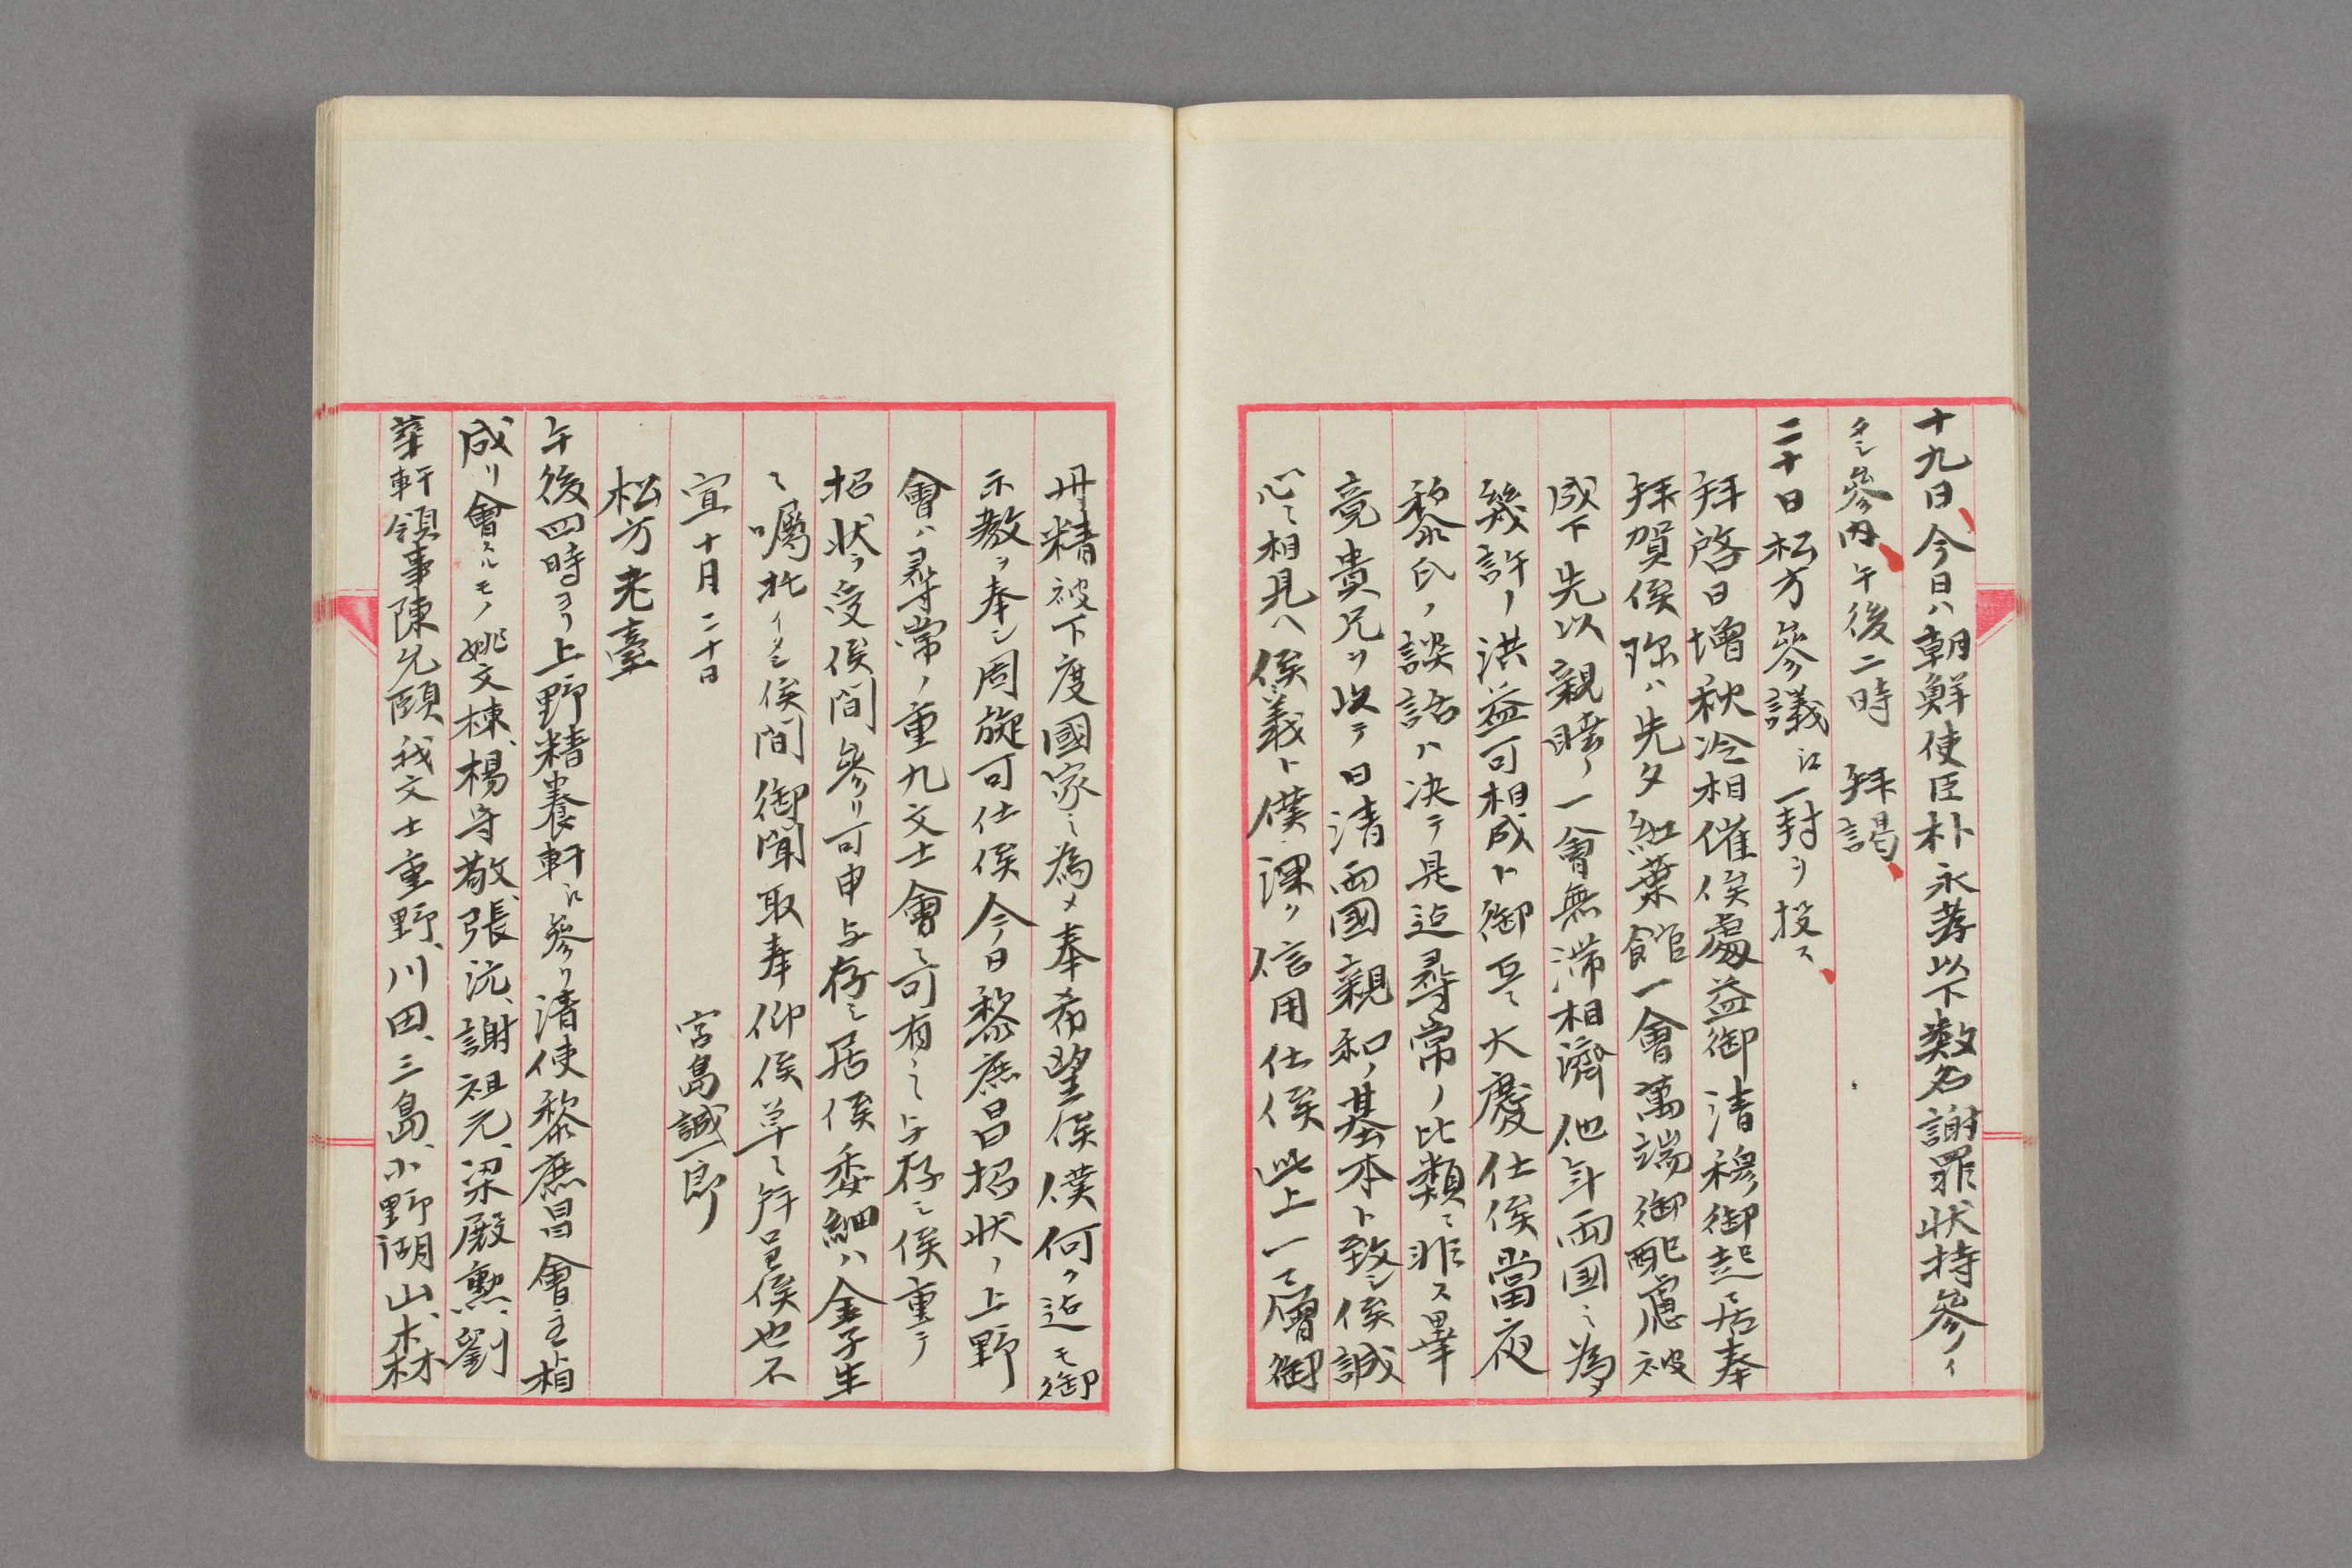 十九日、今日ハ朝鮮使臣朴永孝以下数名謝罪状持参イ
タシ参内、午後二時　拝謁、
二十日松方参議江一封ヲ投ス、
拝啓日増秋冷相催候處益御清穆御起居奉
拝賀候陳ハ先夕紅葉館一會萬端御配慮被
成下先以親睦ノ一會無滞相濟他年両国ノ為メ
幾許ノ洪益可相成ト御互ニ大慶仕候當夜
黎氏ノ談話ハ决テ是迠尋常ノ比類ニ非ス畢
竟貴兄ヲ以テ日清両國親和ノ基本ト致シ候誠
心ニ相見ヘ候義ト僕深ク信用仕候此上一層御
丹精被下度國家ノ為メ奉希望候僕何ク迠モ御
示教ヲ奉シ周旋可仕候今日黎庶昌招状ノ上野
會ハ尋常ノ重九文士會ニ可有之与存シ候重テ
招状ヲ受候間參リ可申与存シ居候委細ハ金子生
ニ囑托イタシ候間御聞取奉仰候草々拝呈候也不
宣十月二十日
宮島誠一郎
松方老臺
午後四時ヨリ上野精養軒江參リ清使黎庶昌會主相
成リ會スルモノ姚文棟、楊守敬、張沆、謝祖元、梁殿勲、劉
葦軒領事陳允頤我文士重野、川田、三島、小野湖山、森